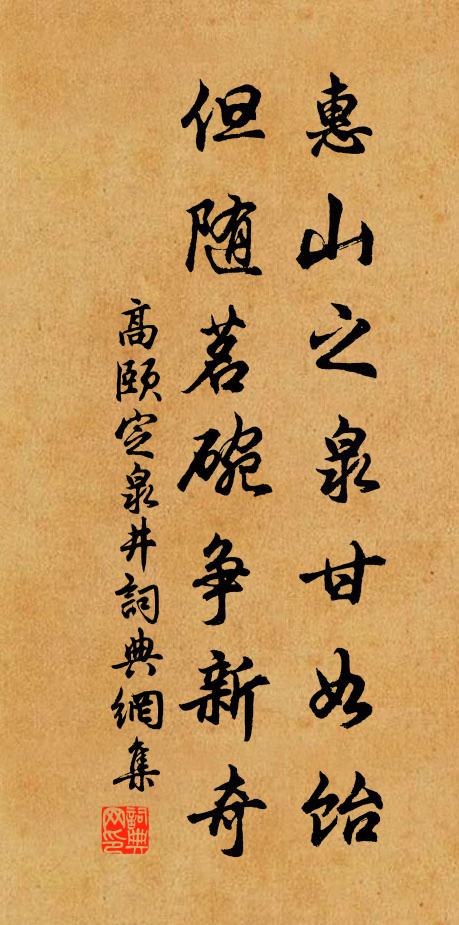 惠山之泉甘如饴
但随茗碗争新奇
高颐定泉井詞典網集
詞典网印